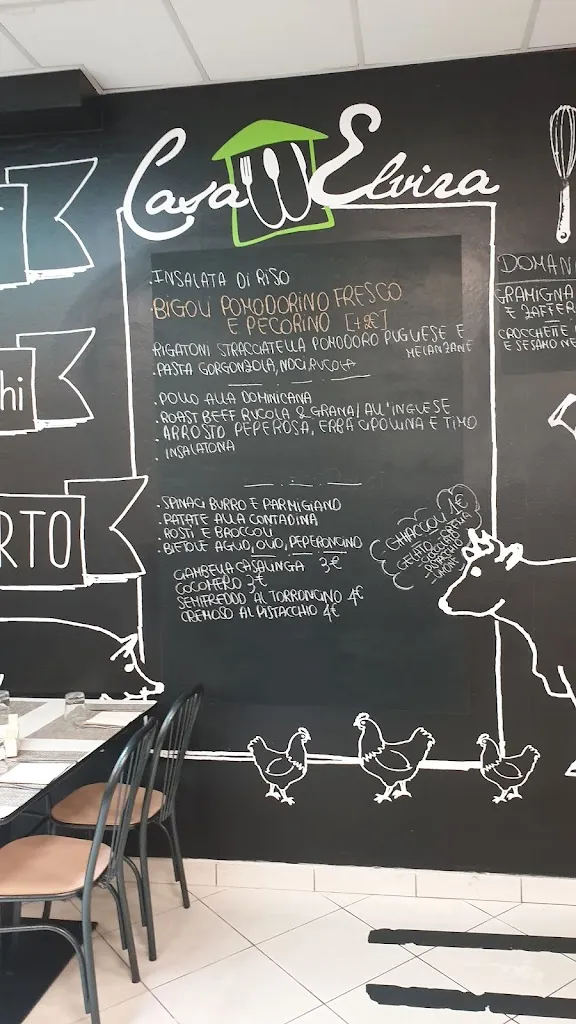 Casa Elvira
. INSALATA DI RISO
. BIGOLI POMODORINO FRESCO
E PECORINO [+2€]
. RIGATONI STRACCIATELLA POMODORO PUGLIESE E
MELANZANE
. PASTA GORGONZOLA, NOCI, RUCOLA
. POLLO ALLA DOMINICANA
. ROAST BEEF RUCOLA & GRANA/ALL'INGLESE
. ARROSTO PEPE ROSA, ERBA CIPOLLINA E TIMO
. INSALATONA
. SPINACI BURRO E PARMIGIANO
. PATATE ALLA CONTADINA
. ROSTI E BROCCOLI
. BIETOLE AGLIO, OLIO, PEPERONCINO
CIAMBELLA CASALINGA 3€
COCOMERO 3€
SEMIFREDDO AL TORRONCINO 4€
CREMOSO AL PISTACCHIO 4€
GHIACCIOLI 1€
GELATO
- PISTACCHIO
- LIMONE
DOMANI
GRAMIGNA
E ZAFFER
CROCCHETTE
E SESAMO NE
hi
RTO